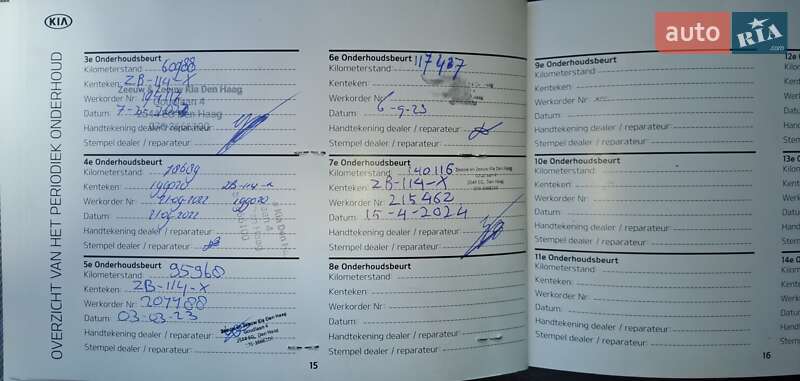 KIA
OVERZICHT VAN HET PERIODIEK ONDERHOUD
3e Onderhoudsbeurt
Kilometerstand 60988
Kenteken: ZB-114-X
Zeeuw & Zeeuw Kia Den Haag
Werkorder Nr:
Datum:
Handtekening dealer / reparateur:
Stempel dealer / reparateur:
4e Onderhoudsbeurt
Kilometerstand 78639
Kenteken: 199020 ZB-114-X
Werkorder Nr: 21-09-2022 199020
Datum:
Handtekening dealer / reparateur:
Stempel dealer / reparateur:
5e Onderhoudsbeurt
Kilometerstand 95960
Kenteken: ZB-114-X
Werkorder Nr: 207488
Datum: 03-03-23
Handtekening dealer / reparateur:
Stempel dealer / reparateur:
Zeeuw en Zeeuw Kia Den Haag
15
6e Onderhoudsbeurt
Kilometerstand 117437
Kenteken:
Werkorder Nr:
Datum: 6-9-23
Handtekening dealer / reparateur:
Stempel dealer / reparateur:
7e Onderhoudsbeurt
Kilometerstand 140116
Zeeuw en Zeeuw Kia Den Haag
Kenteken: ZB-114-X
Werkorder Nr: 215462
Datum: 15-4-2024
Handtekening dealer / reparateur:
Stempel dealer / reparateur:
8e Onderhoudsbeurt
Kilometerstand
Kenteken:
Werkorder Nr:
Datum:
Handtekening dealer / reparateur:
Stempel dealer / reparateur:
9e Onderhoudsbeurt
Kilometerstand
Kenteken:
Werkorder Nr:
Datum:
Handtekening dealer / reparateur:
Stempel dealer / reparateur:
10e Onderhoudsbeurt
Kilometerstand
Kenteken:
Werkorder Nr:
Datum:
Handtekening dealer / reparateur:
Stempel dealer / reparateur:
11e Onderhoudsbeurt
Kilometerstand
Kenteken:
Werkorder Nr:
Datum:
Handtekening dealer / reparateur:
Stempel dealer / reparateur:
16
12e
13e
14e
auto RIA.com